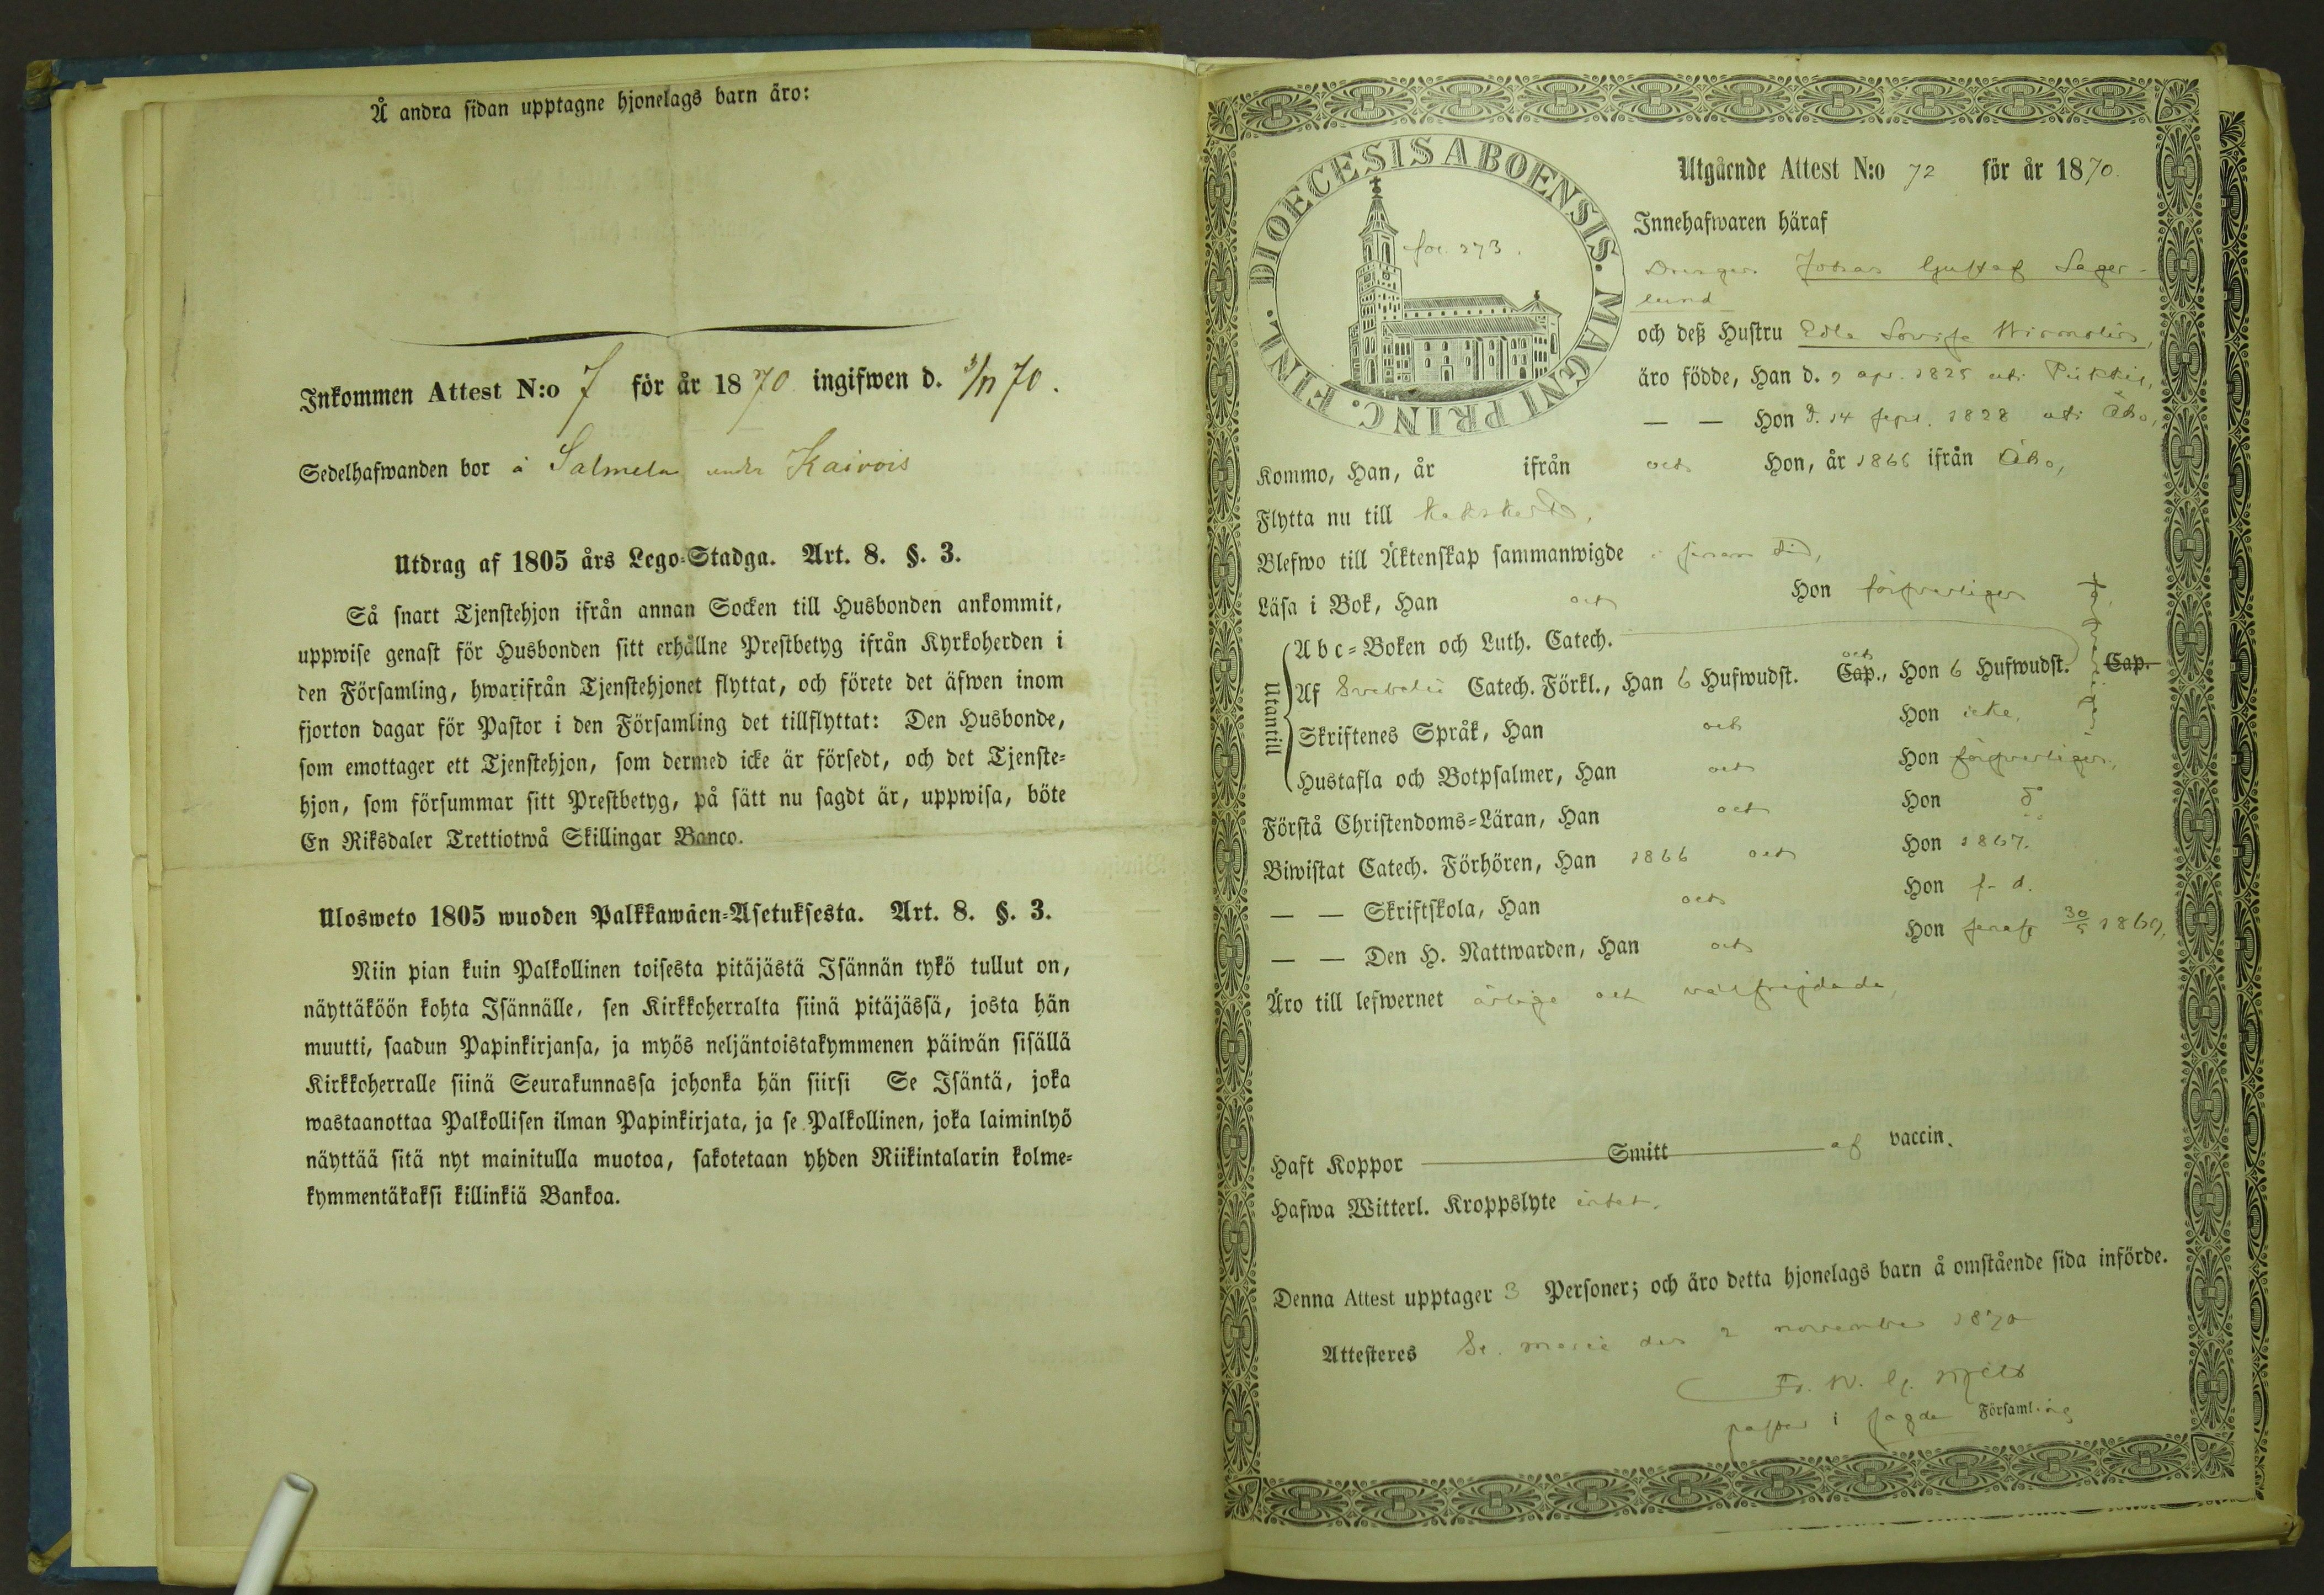 Å andra sidan upptagne hjonelags barn äro:
Inkommen Attest N:o 7 för år 1870 ingifwen d. 3/11 70.
Sedelhafwanden bor å Salmela under Kaivois
Utdrag af 1805 års Lego-Stadga. Art. 8. §. 3.
Så snart Tjenstehjon ifrån annan Socken till Husbonden ankommit,
uppwise genast för Husbonden sitt erhållne Prestbetyg ifrån Kyrkoherden i
den Församling, hwarifrån Tjenstehjonet flyttat, och förete det äfwen inom
fjorton dagar för Pastor i den Församling det tillflyttat: Den Husbonde,
som emottager ett Tjenstehjon, som dermed icke är försedt, och det Tjenste-
hjon, som försummar sitt Prestbetyg, på sätt nu sagdt är, uppwisa, böte
En Riksdaler Trettiotwå Skillingar Banco.
Ulosweto 1805 wuoden Palkkawäen-Asetuksesta. Art. 8. §. 3.
Niin pian kuin Palkollinen toisesta pitäjästä Isännän tykö tullut on,
näyttäköön kohta Isännälle, sen Kirkkoherralta siinä pitäjässä, josta hän
muutti, saadun Papinkirjansa, ja myös neljäntoistakymmenen päiwän sisällä
Kirkkoherralle siinä Seurakunnassa johonka hän siirsi Se Isäntä, joka
wastaanottaa Palkollisen ilman Papinkirjata, ja se Palkollinen, joka laiminlyö
näyttää sitä nyt mainitulla muotoa, sakotetaan yhden Riikintalarin kolme-
kymmentäkaksi killinkiä Bankoa.
DIOECESIS ABOENSIS. MAGNI PRINC. FINL.
fol. 273.
Utgående Attest N:o 72 för år 1870.
Innehafwaren häraf
Drengen Johan Gustaf Lager-
lund
och deß Hustru Edla Lovisa
äro födde, Han d. 9 apr. 1825 uti Piikkis,
— — Hon d. 14 sept. 1828 uti Åbo,
Kommo, Han, år ifrån och Hon, år 1866 ifrån Åbo,
Flytta nu till Kakskerta,
Blefwo till Äktenskap sammanwigde i sinom tid,
Läsa i Bok, Han och Hon försvarligen
Utantill
Abc-Boken och Luth. Catech.
Af Svebelii Catech. Förkl., Han 6 Hufwudst. och Cap., Hon 6 Hufwudst. Cap.
Skriftenes Språk, Han och Hon icke,
Hustafla och Botpsalmer, Han och Hon försvarligen,
Förstå Christendoms-Läran, Han och Hon d:o
Biwistat Catech. Förhören, Han 1866 och Hon 1867.
— — Skriftskola, Han och Hon f. d.
— — Den H. Nattwarden, Han och Hon senast 30/5 1869,
Äro till lefwernet ärliga och välfrejdade,
Haft Koppor Smitt af vaccin.
Hafwa Witterl. Kroppslyte intet.
Denna Attest upptager 3 Personer; och äro detta hjonelags barn å omstående sida införde.
Attesteres St. Marie den 2 november 1870
Fr. W. G. Hjelt
pastor i sagde Församling